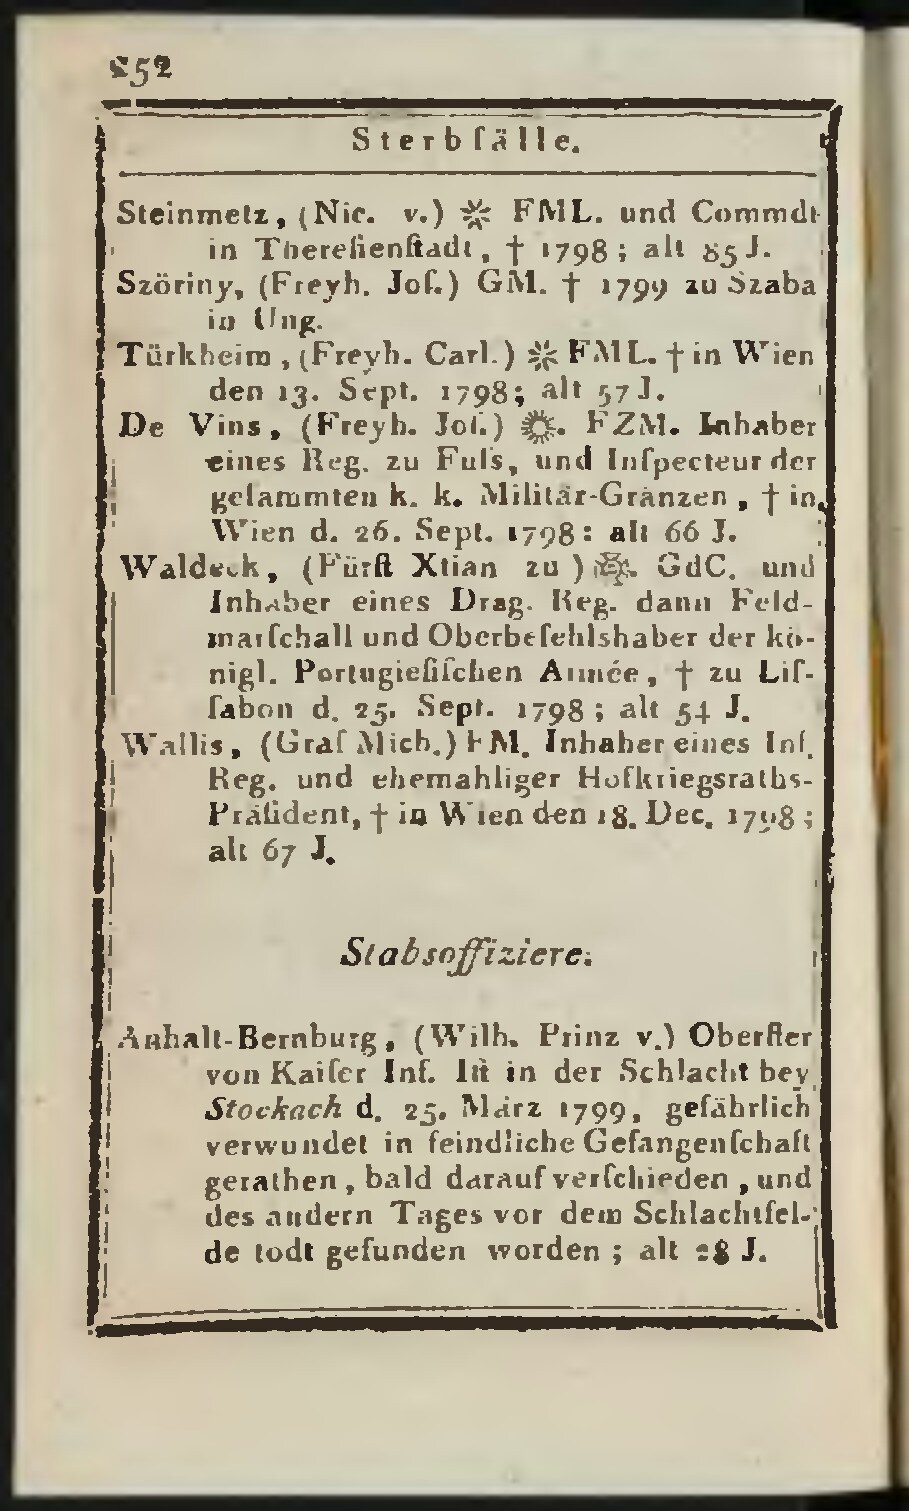 252
Sterbfälle.
Steinmetz, (Nic. v.) FML. und Commdt
in Theresienstadt, † 1798; alt 85 J.
Szöriny, (Freyh. Jos.) GM. † 1799 zu Szaba
in Ung.
Türkheim, (Freyh. Carl.) FML. † in Wien
den 13. Sept. 1798; alt 57 J.
De Vins, (Freyh. Jos.) FZM. Inhaber
eines Reg. zu Fuſs, und Inſpecteur der
geſammten k. k. Militär-Gränzen, † in
Wien d. 26. Sept. 1798: alt 66 J.
Waldeck, (Fürſt Xtian zu) GdC. und
Inhaber eines Drag. Reg. dann Feld-
marſchall und Oberbefehlshaber der kö-
nigl. Portugieſiſchen Armée, † zu Liſ-
ſabon d. 25. Sept. 1798; alt 54 J.
Wallis, (Graf Mich.) FM. Inhaber eines Inf.
Reg. und ehemahliger Hofkriegsraths-
Präſident, † in Wien den 18. Dec. 1798;
alt 67 J.
Stabsoffiziere.
Anhalt-Bernburg, (Wilh. Prinz v.) Oberſter
von Kaiſer Inf. Iſt in der Schlacht bey
Stockach d. 25. März 1799, gefährlich
verwundet in feindliche Gefangenſchaft
gerathen, bald darauf verſchieden, und
des andern Tages vor dem Schlachtfel-
de todt gefunden worden; alt 28 J.